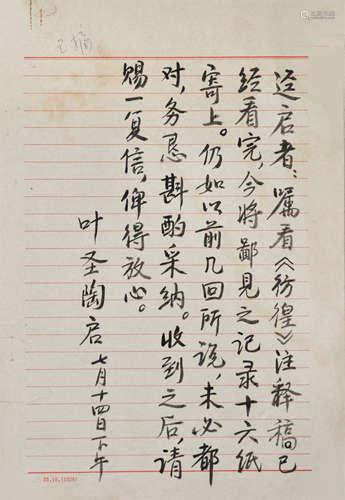 迳启者：嘱看《彷徨》注释稿已
经看完，今将鄙见之记录十六纸
寄上。仍如以前几回所说，未必都
对，务恳斟酌采纳。收到之后，请
赐一复信，俾得放心。
叶圣陶启 七月十四日下午
已摘